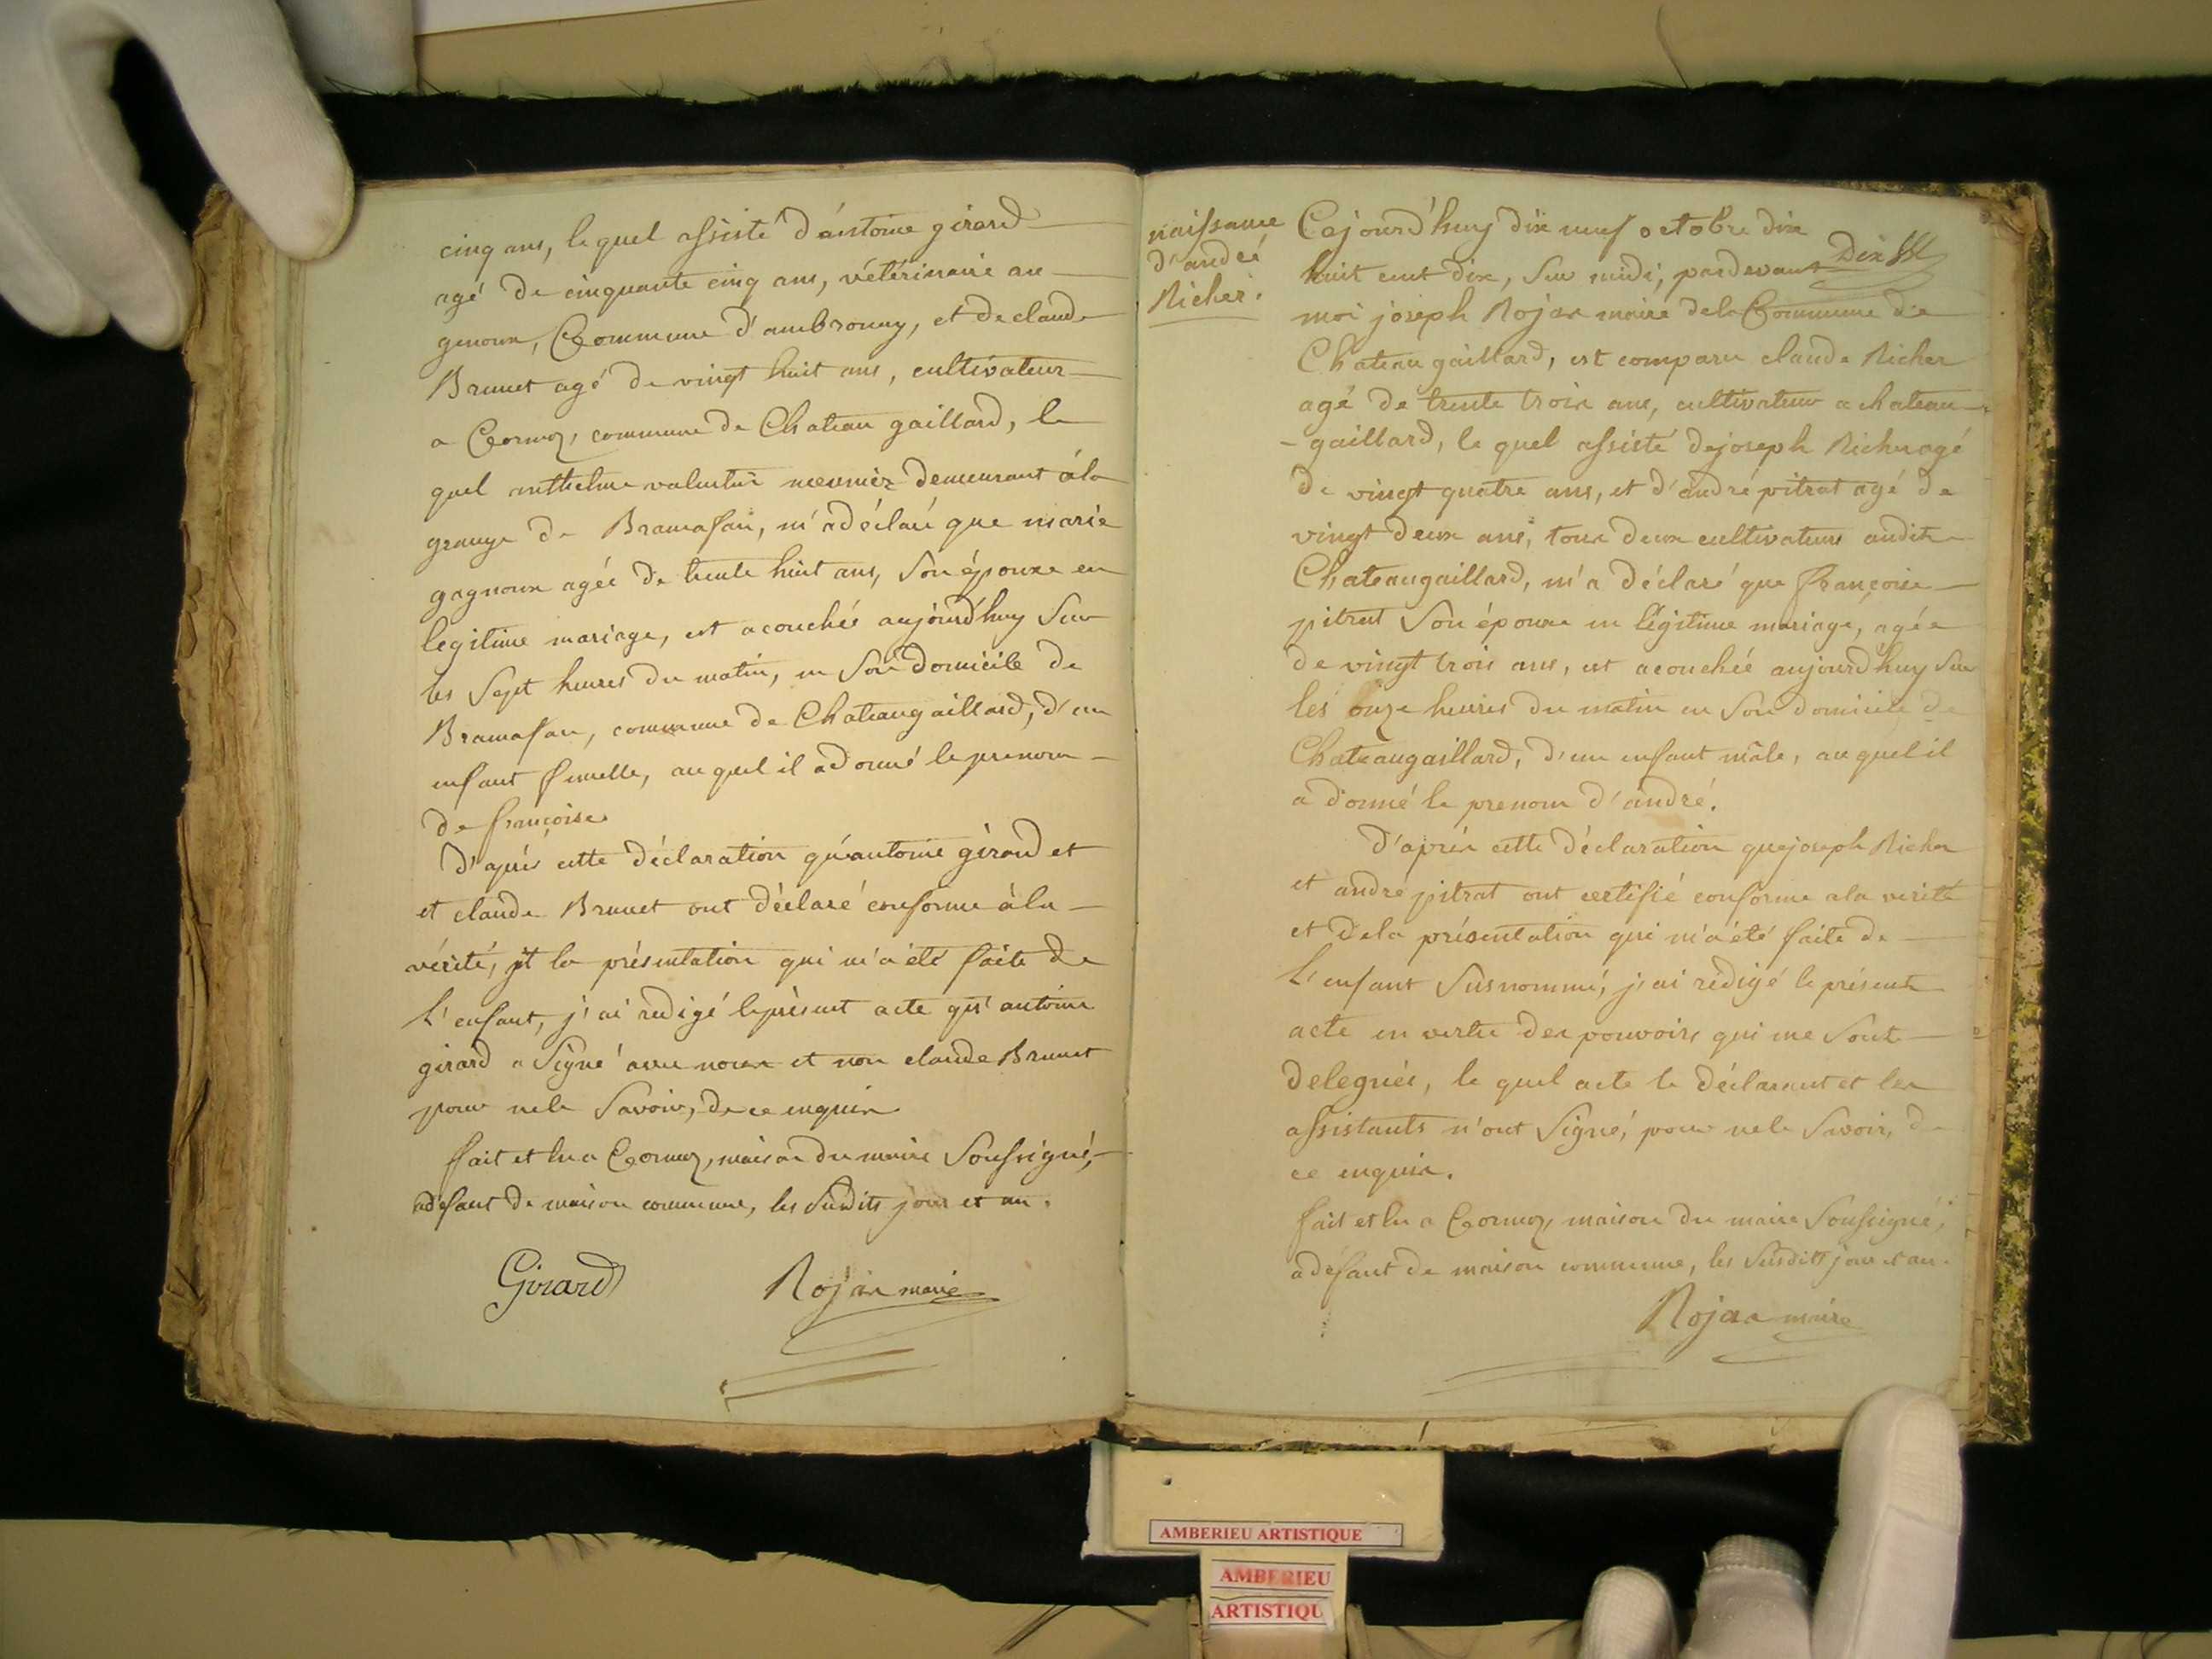 cinq ans, le quel assisté d'antoine girard
agé de cinquante cinq ans, vétérinaire au
genoux, Commune d'ambronay, et de claude
Brunet agé de vingt huit ans, cultivateur
a Cormoz, commune de Chateau gaillard, le
quel anthelme valentin meunier demeurant à la
grange de Bramafan, m'a déclaré que marie
gagnoux agée de trente huit ans, son épouse en
legitime mariage, est acouchée aujourd'huy sur
les sept heures du matin, en son domicile de
Bramafan, commune de Chateaugaillard, d'un
enfant femelle, au quel il a donné le prenom
de françoise
D'après cette déclaration qu'antoine girard et
et claude Brunet ont déclaré conforme à la
vérité, et la présentation qui m'a été faite de
L'enfant, j'ai redigé le présent acte qu'antoine
girard a signé avec nous et non claude Brunet
pour ne le savoir, de ce enquis
fait et lu a Cormoz, maison du maire soussigné,
a défaut de maison commune, les susdits jour et an.
Girard Rojas maire
naissance
d'andré
Richer.
Cejourd'huy dix neuf octobre dix
huit cent dix, sur midi, pardevant
Dix
moi joseph Rojas maire de la Commune de
Chateau gaillard, est comparu claude Richer
agé de trente trois ans, cultivateur a chateau
- gaillard, le quel assisté de joseph Richer agé
de vingt quatre ans, et d'andré pitrat agé de
vingt deux ans, tous deux cultivateurs audit
Chateaugaillard, m'a déclaré que françoise
pitrat son épouse en légitime mariage, agée
de vingt trois ans, est acouchée aujourd'huy sur
les onze heures du matin en son domicile de
Chateaugaillard, d'un enfant mâle, au quel il
a donné le prenom d'andré.
D'après cette déclaration que joseph Richer
et andré pitrat ont certifié conforme a la verité
et de la présentation qui m'a été faite de
L'enfant susnommé, j'ai rédigé le présent
acte en vertu des pouvoirs qui me sont
delegués, le quel acte le déclarant et les
assistants n'ont signé, pour ne le savoir, de
ce enquis.
fait et lu a Cormoz, maison du maire soussigné,
a défaut de maison commune, les susdits jour et an.
Rojas maire
AMBERIEU ARTISTIQUE
AMBERIEU
ARTISTIQU